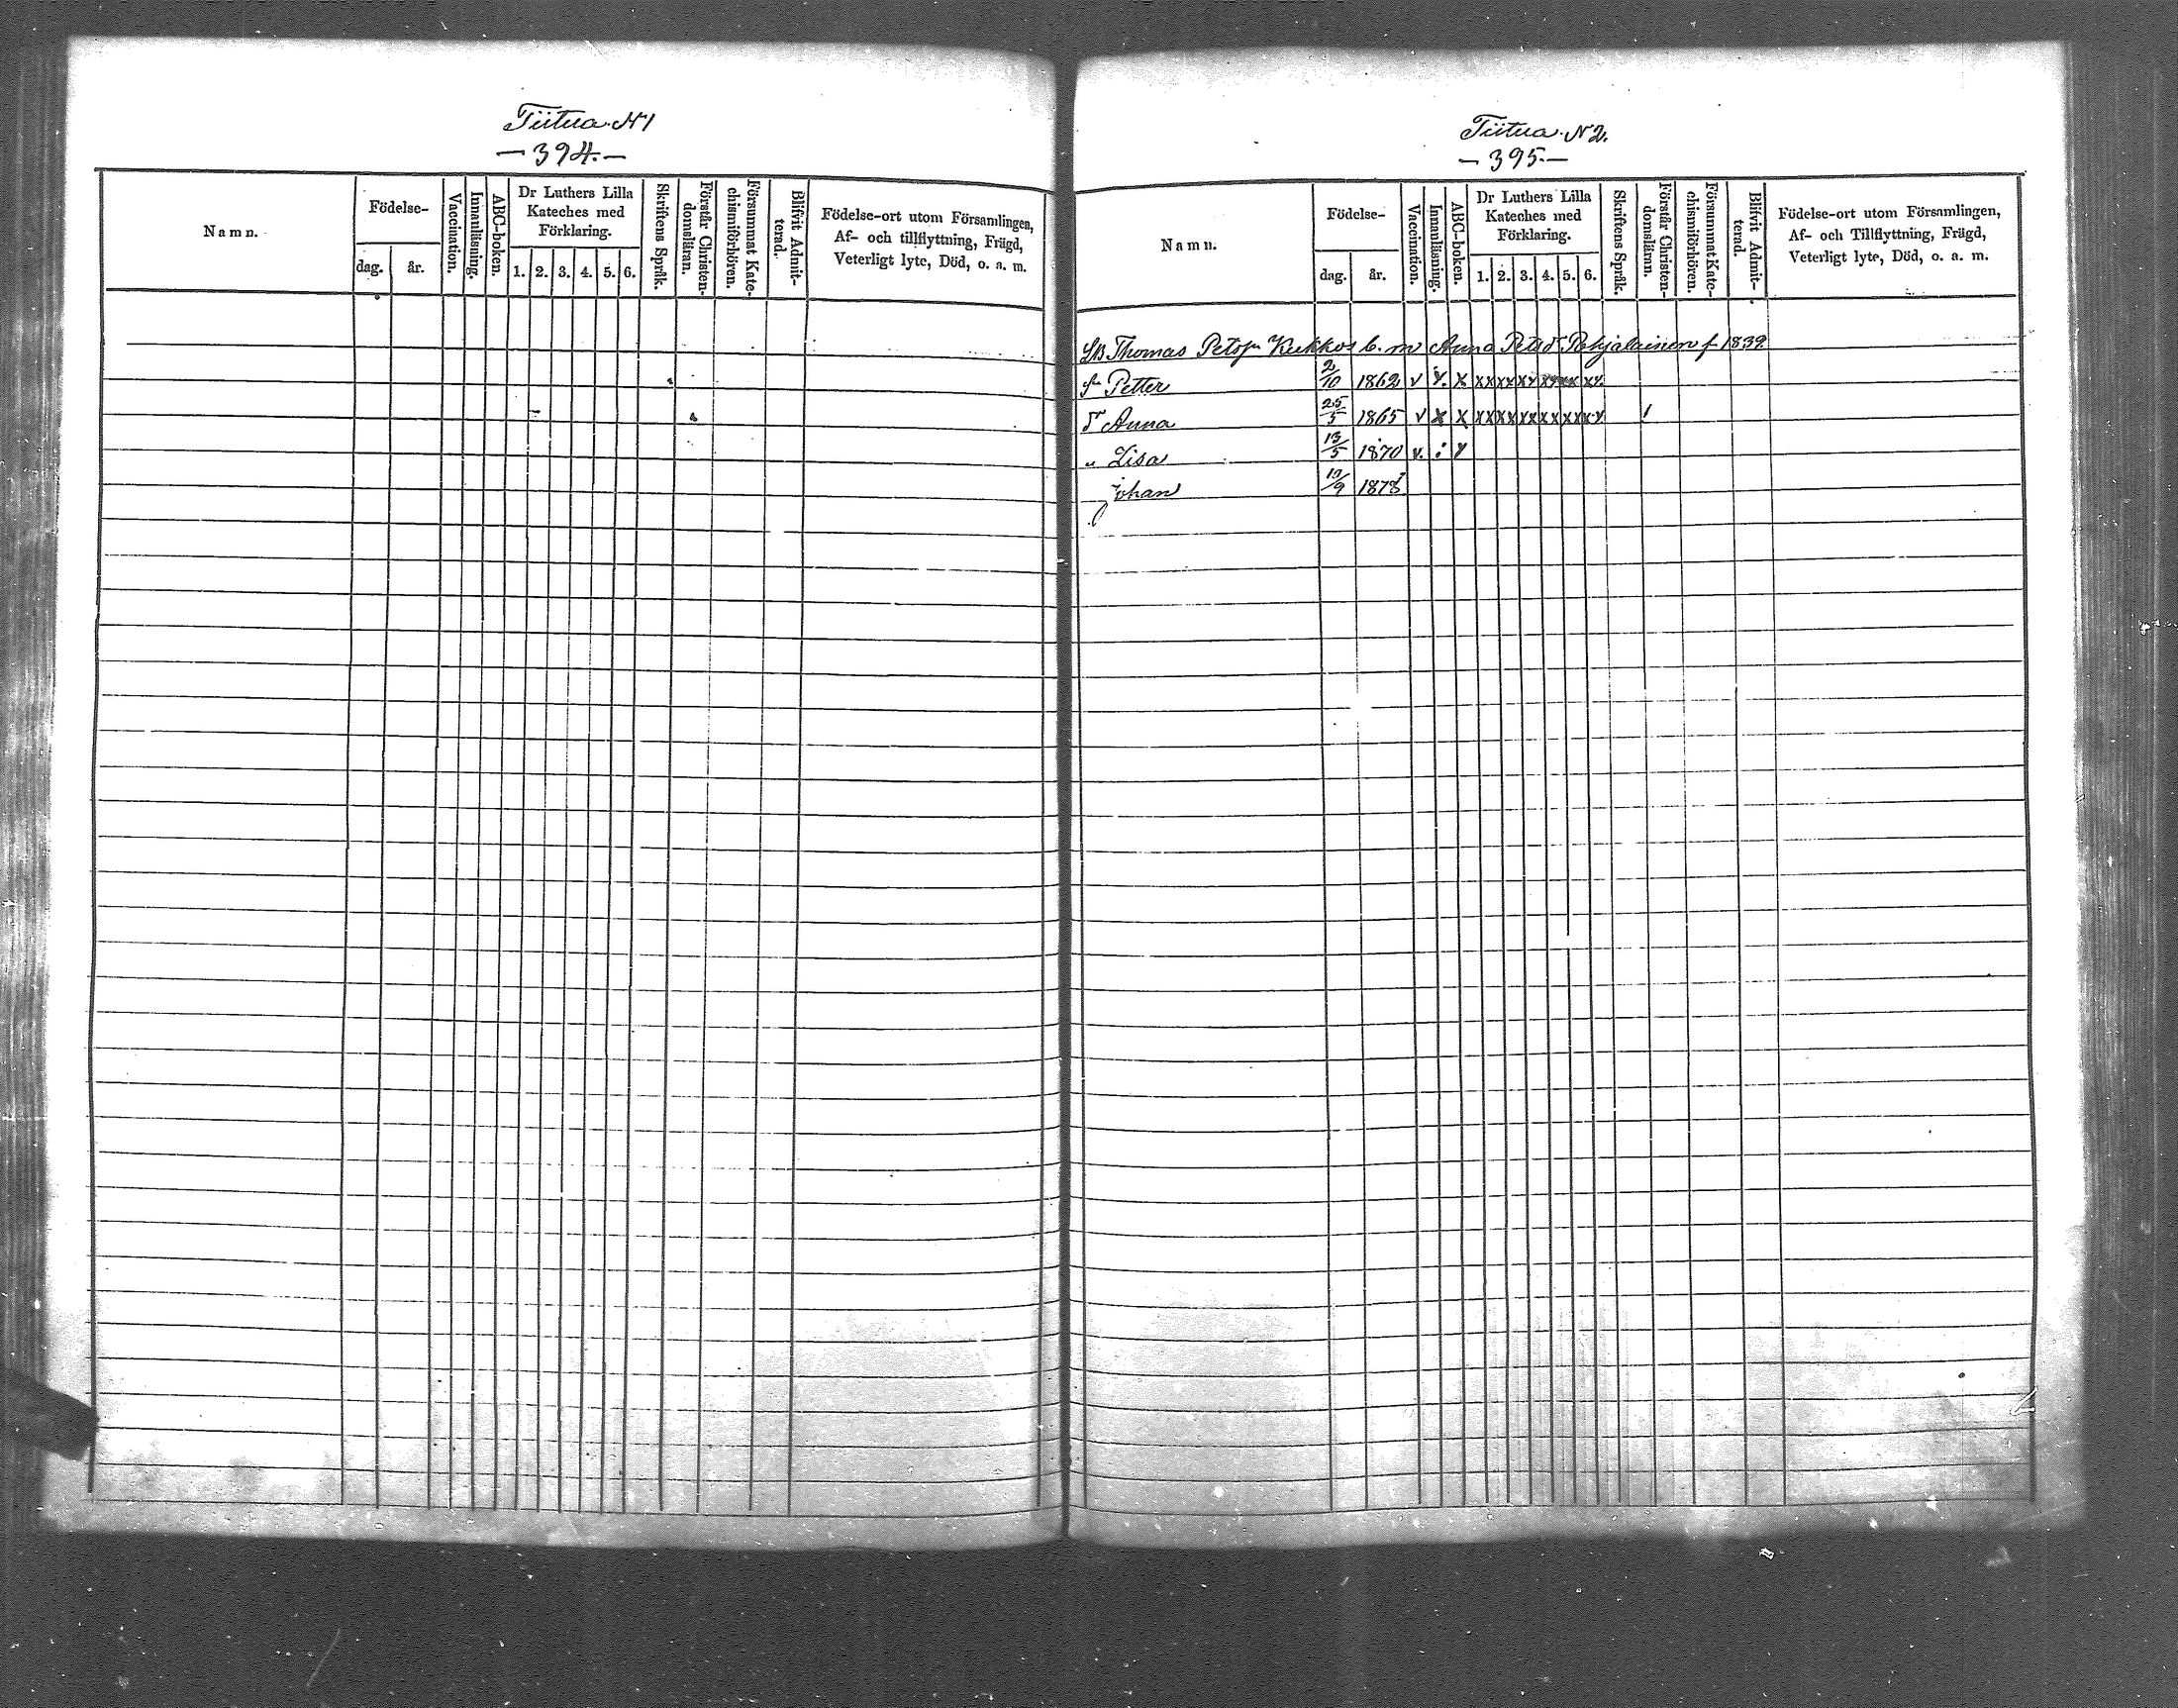 Tiitua N1
— 394. —
Namn.
Födelse-
dag.
år.
Vaccination.
Innanläsning.
ABC-boken.
Dr Luthers Lilla
Kateches med
Förklaring.
1. 2. 3. 4. 5. 6.
Skriftens Språk.
Förstår Christen-
domsläran.
Försummat Kate-
chismiförhören.
Blifvit Admit-
terad.
Födelse-ort utom Församlingen,
Af- och tillflyttning, Frägd,
Veterligt lyte, Död, o. a. m.
Tiitua N2.
— 395 —
Namn.
Födelse-
dag.
år.
Vaccination.
Innanläsning.
ABC-boken.
Dr Luthers Lilla
Kateches med
Förklaring.
1. 2. 3. 4. 5. 6.
Skriftens Språk.
Förstår Christen-
domsläran.
Försummat Kate-
chismiförhören.
Blifvit Admit-
terad.
Födelse-ort utom Församlingen,
Af- och Tillflyttning, Frägd,
Veterligt lyte, Död, o. a. m.
Thomas Petsn Kukkos b. m Anna Petsdr Pohjalainen f 1839
sn Petter 2/10 1862 v x x xx xx xx xx xx xx
dr Anna 25/5 1865 v x x xx xx xx xx xx xx 1
" Lisa 13/5 1870 v. : y
Johan 1878